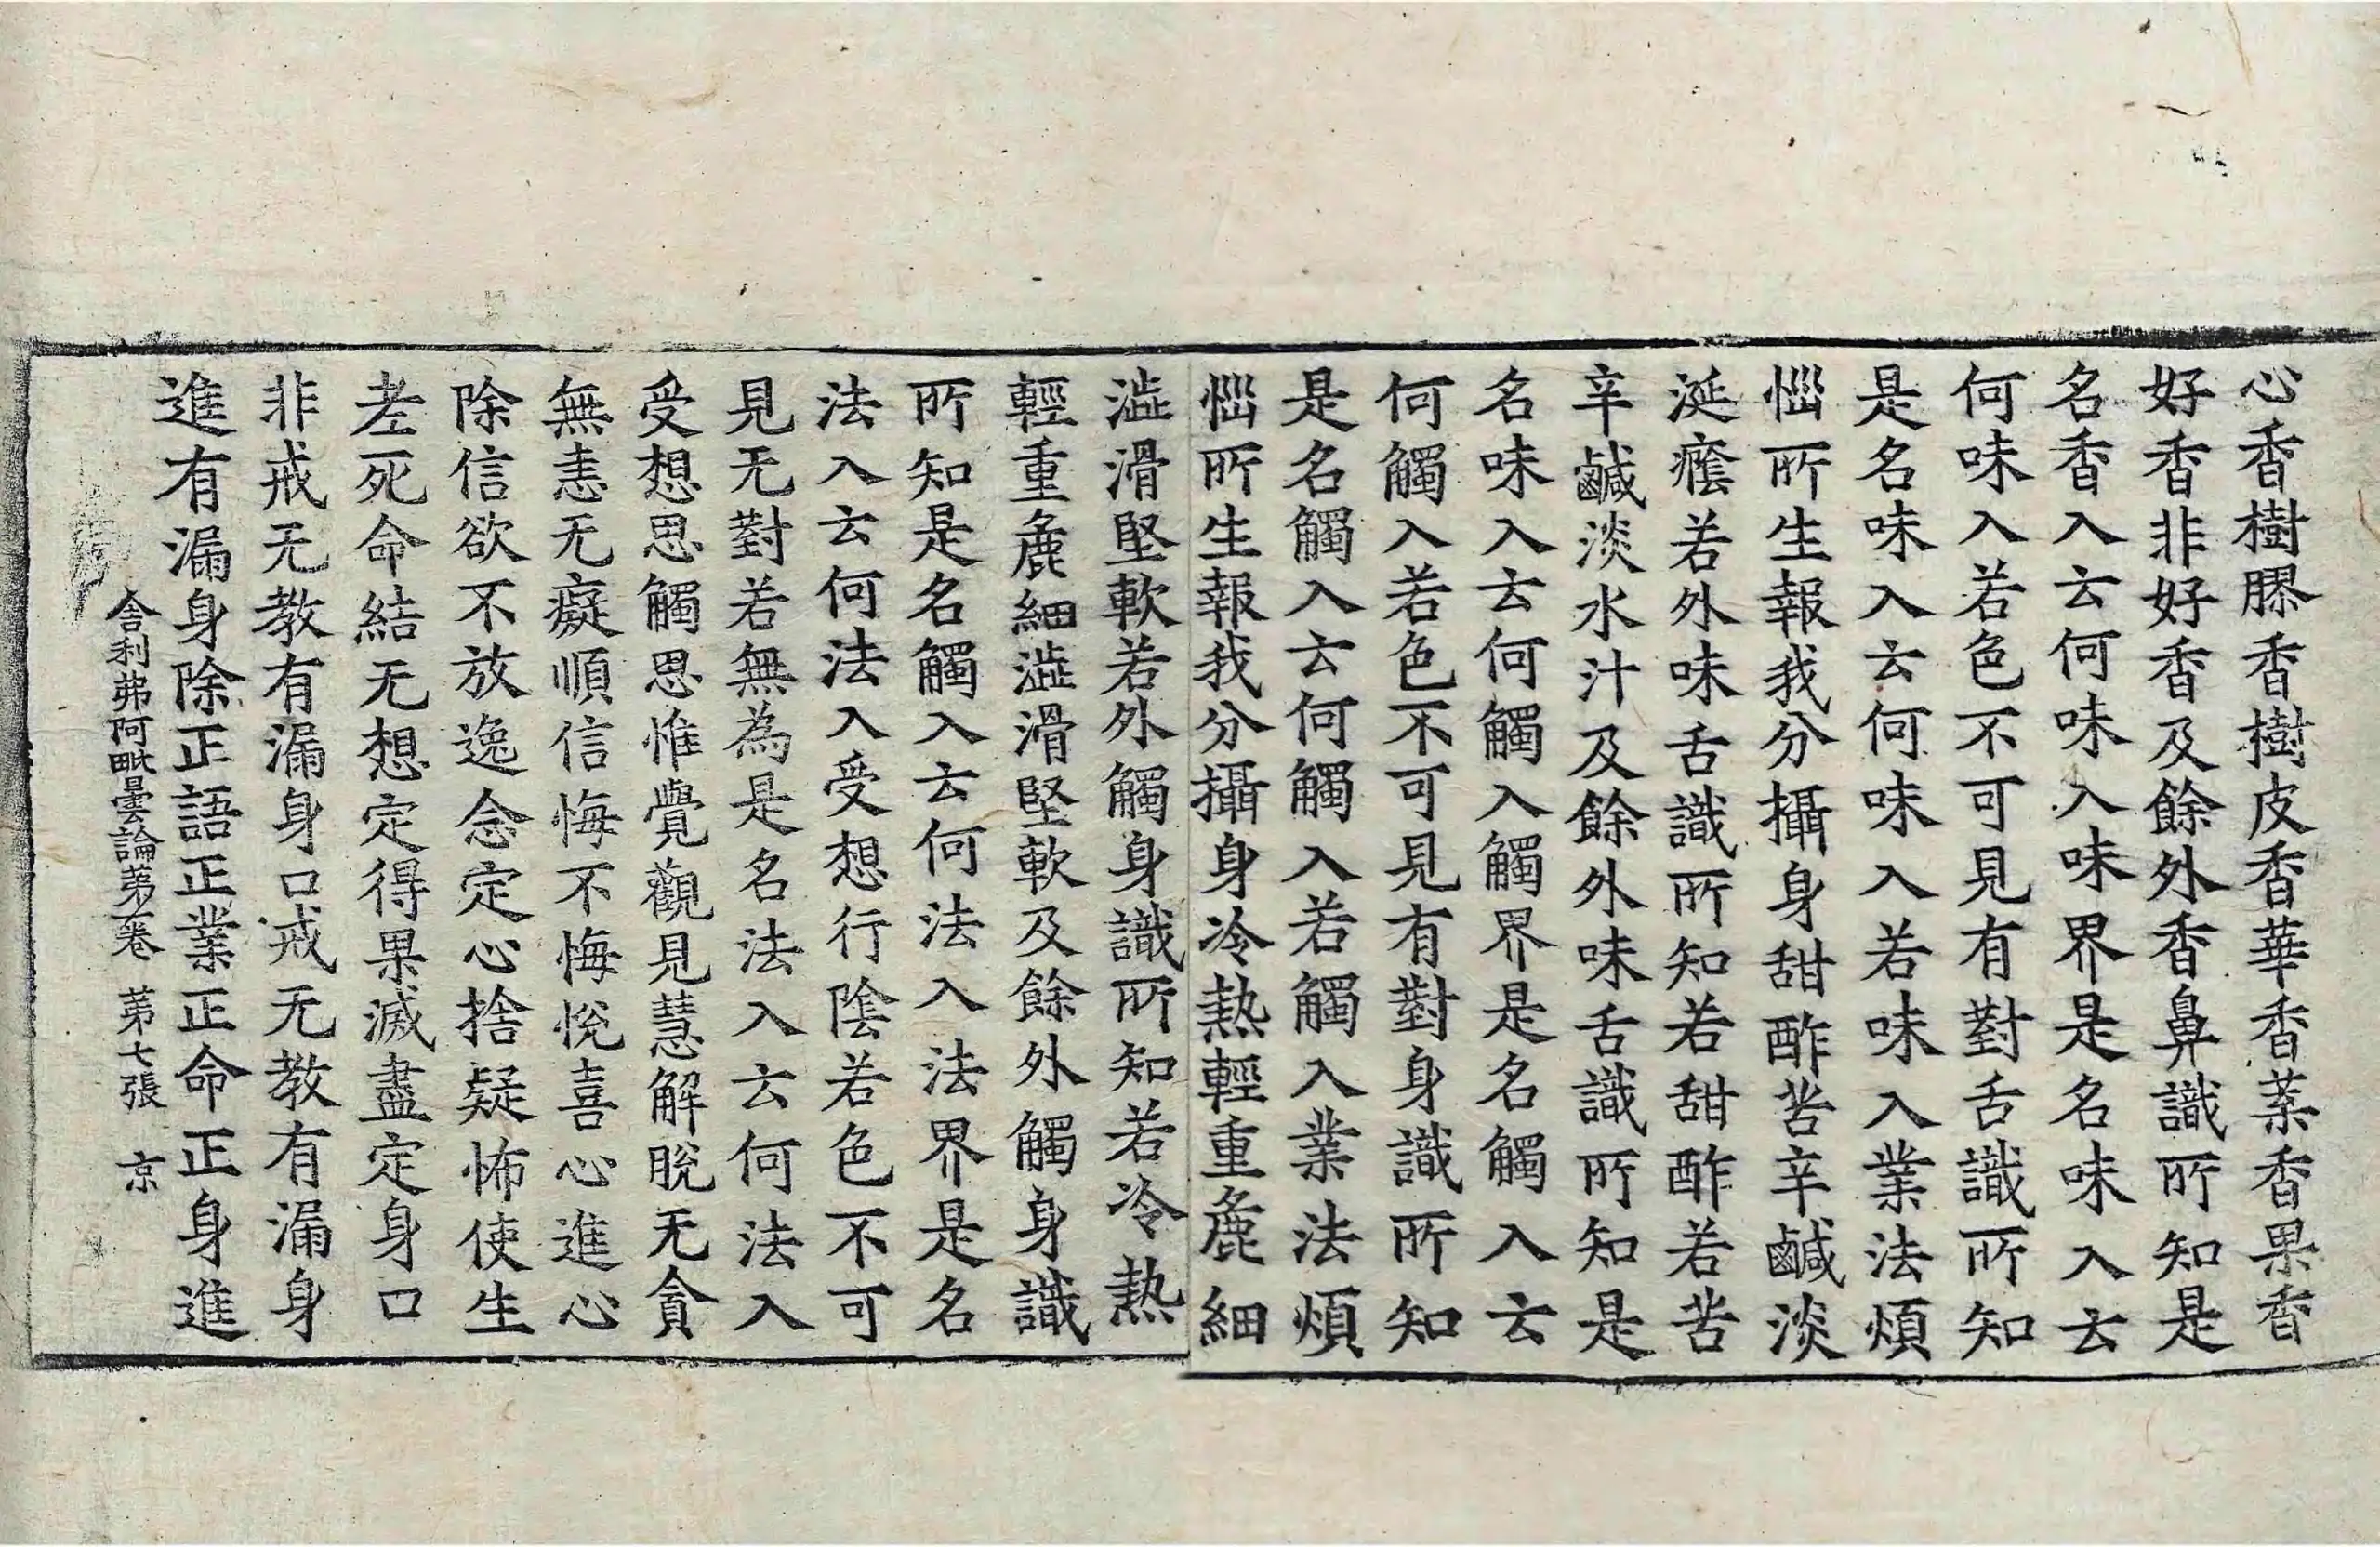 心香樹膠香樹皮香華香葉香果香
好香非好香及餘外香鼻識所知是
名香入云何味入味界是名味入云
何味入若色不可見有對舌識所知
是名味入云何味入若味入業法煩
惱所生報我分攝身甜酢苦辛鹹淡
涎癊若外味舌識所知若甜酢若苦
辛鹹淡水汁及餘外味舌識所知是
名味入云何觸入觸界是名觸入云
何觸入若色不可見有對身識所知
是名觸入云何觸入若觸入業法煩
惱所生報我分攝身冷熱輕重麁細
澁滑堅軟若外觸身識所知若冷熱
輕重麁細澁滑堅軟及餘外觸身識
所知是名觸入云何法入法界是名
法入云何法入受想行陰若色不可
見无對若無為是名法入云何法入
受想思觸思惟覺觀見慧解脫无貪
無恚无癡順信悔不悔悅喜心進心
除信欲不放逸念定心捨疑怖使生
老死命結无想定得果滅盡定身口
非戒无教有漏身口戒无教有漏身
進有漏身除正語正業正命正身進
舍利弗阿毗曇論苐一卷 苐七張 京